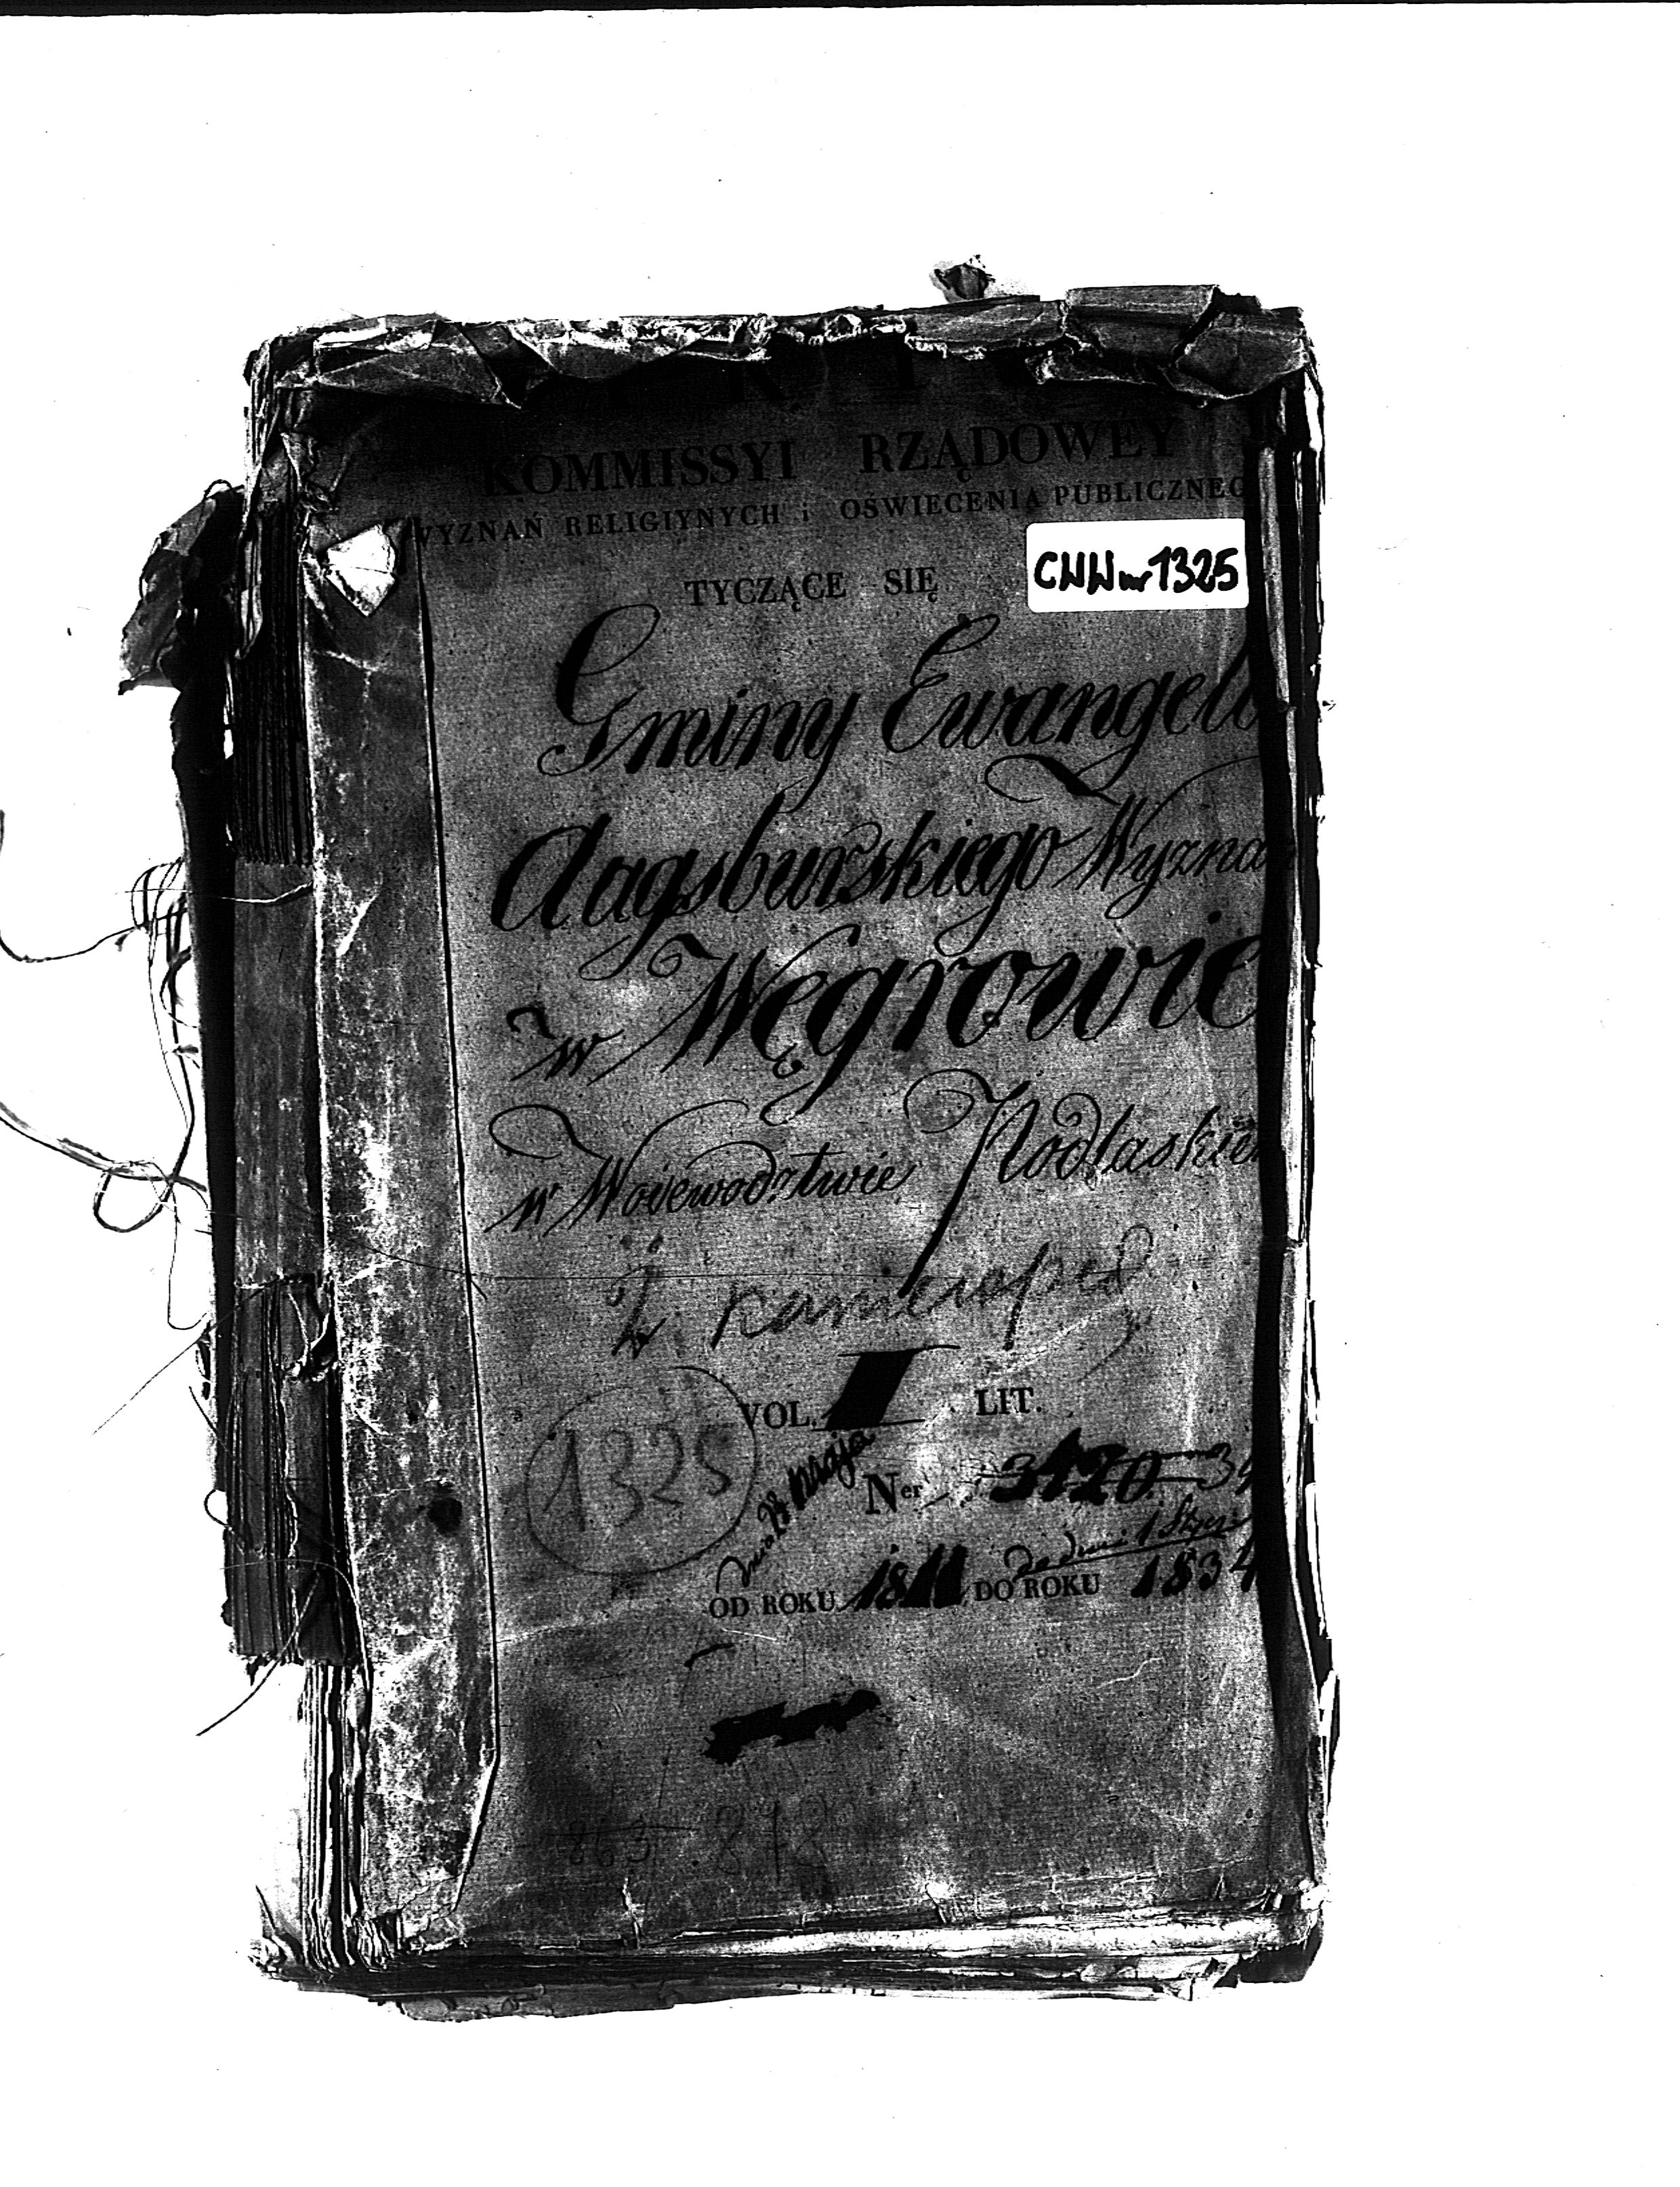 KOMMISSYI RZĄDOWEY
WYZNAŃ RELIGIYNYCH i OŚWIECENIA PUBLICZNEG
CWW nr 1325
TYCZĄCE SIĘ
Gminy Ewangeli
Augsburskiego Wyzna
w Węgrowie
w Wojewodztwie Podlaskie
z
VOL. I LIT.
1325
dnia 28 maja
Ner 3120
do dnia 1 Stycz
OD ROKU 1811 DO ROKU 1834
863 878